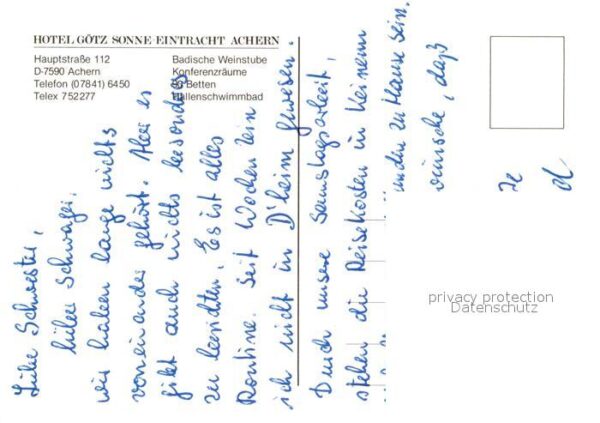 HOTEL GÖTZ SONNE-EINTRACHT ACHERN
Hauptstraße 112
D-7590 Achern
Telefon (07841) 6450
Telex 752277
Badische Weinstube
Konferenzräume
Betten
Hallenschwimmbad
Liebe Schwester,
lieber Schwager,
wir haben lange nichts
voneinander gehört. Aber es
gibt auch nichts besonderes
zu berichten. Es ist alles
Routine. Seit Wochen bin
ich nicht in D'heim gewesen.
Durch unsere Samstagsarbeit,
stehen die Reisekosten in keinem
zu Hause sein.
wünsche, daß
privacy protection
Datenschutz